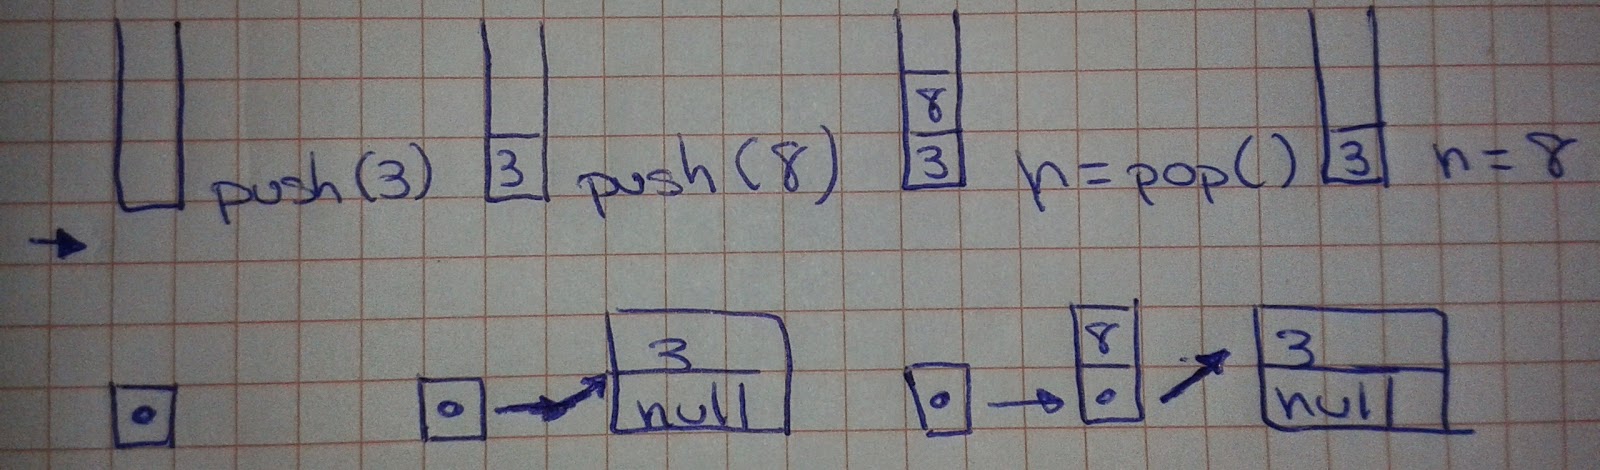 push(3) 3 push(8) 8 3 n=pop() 3 n=8
3 null 8 3 null